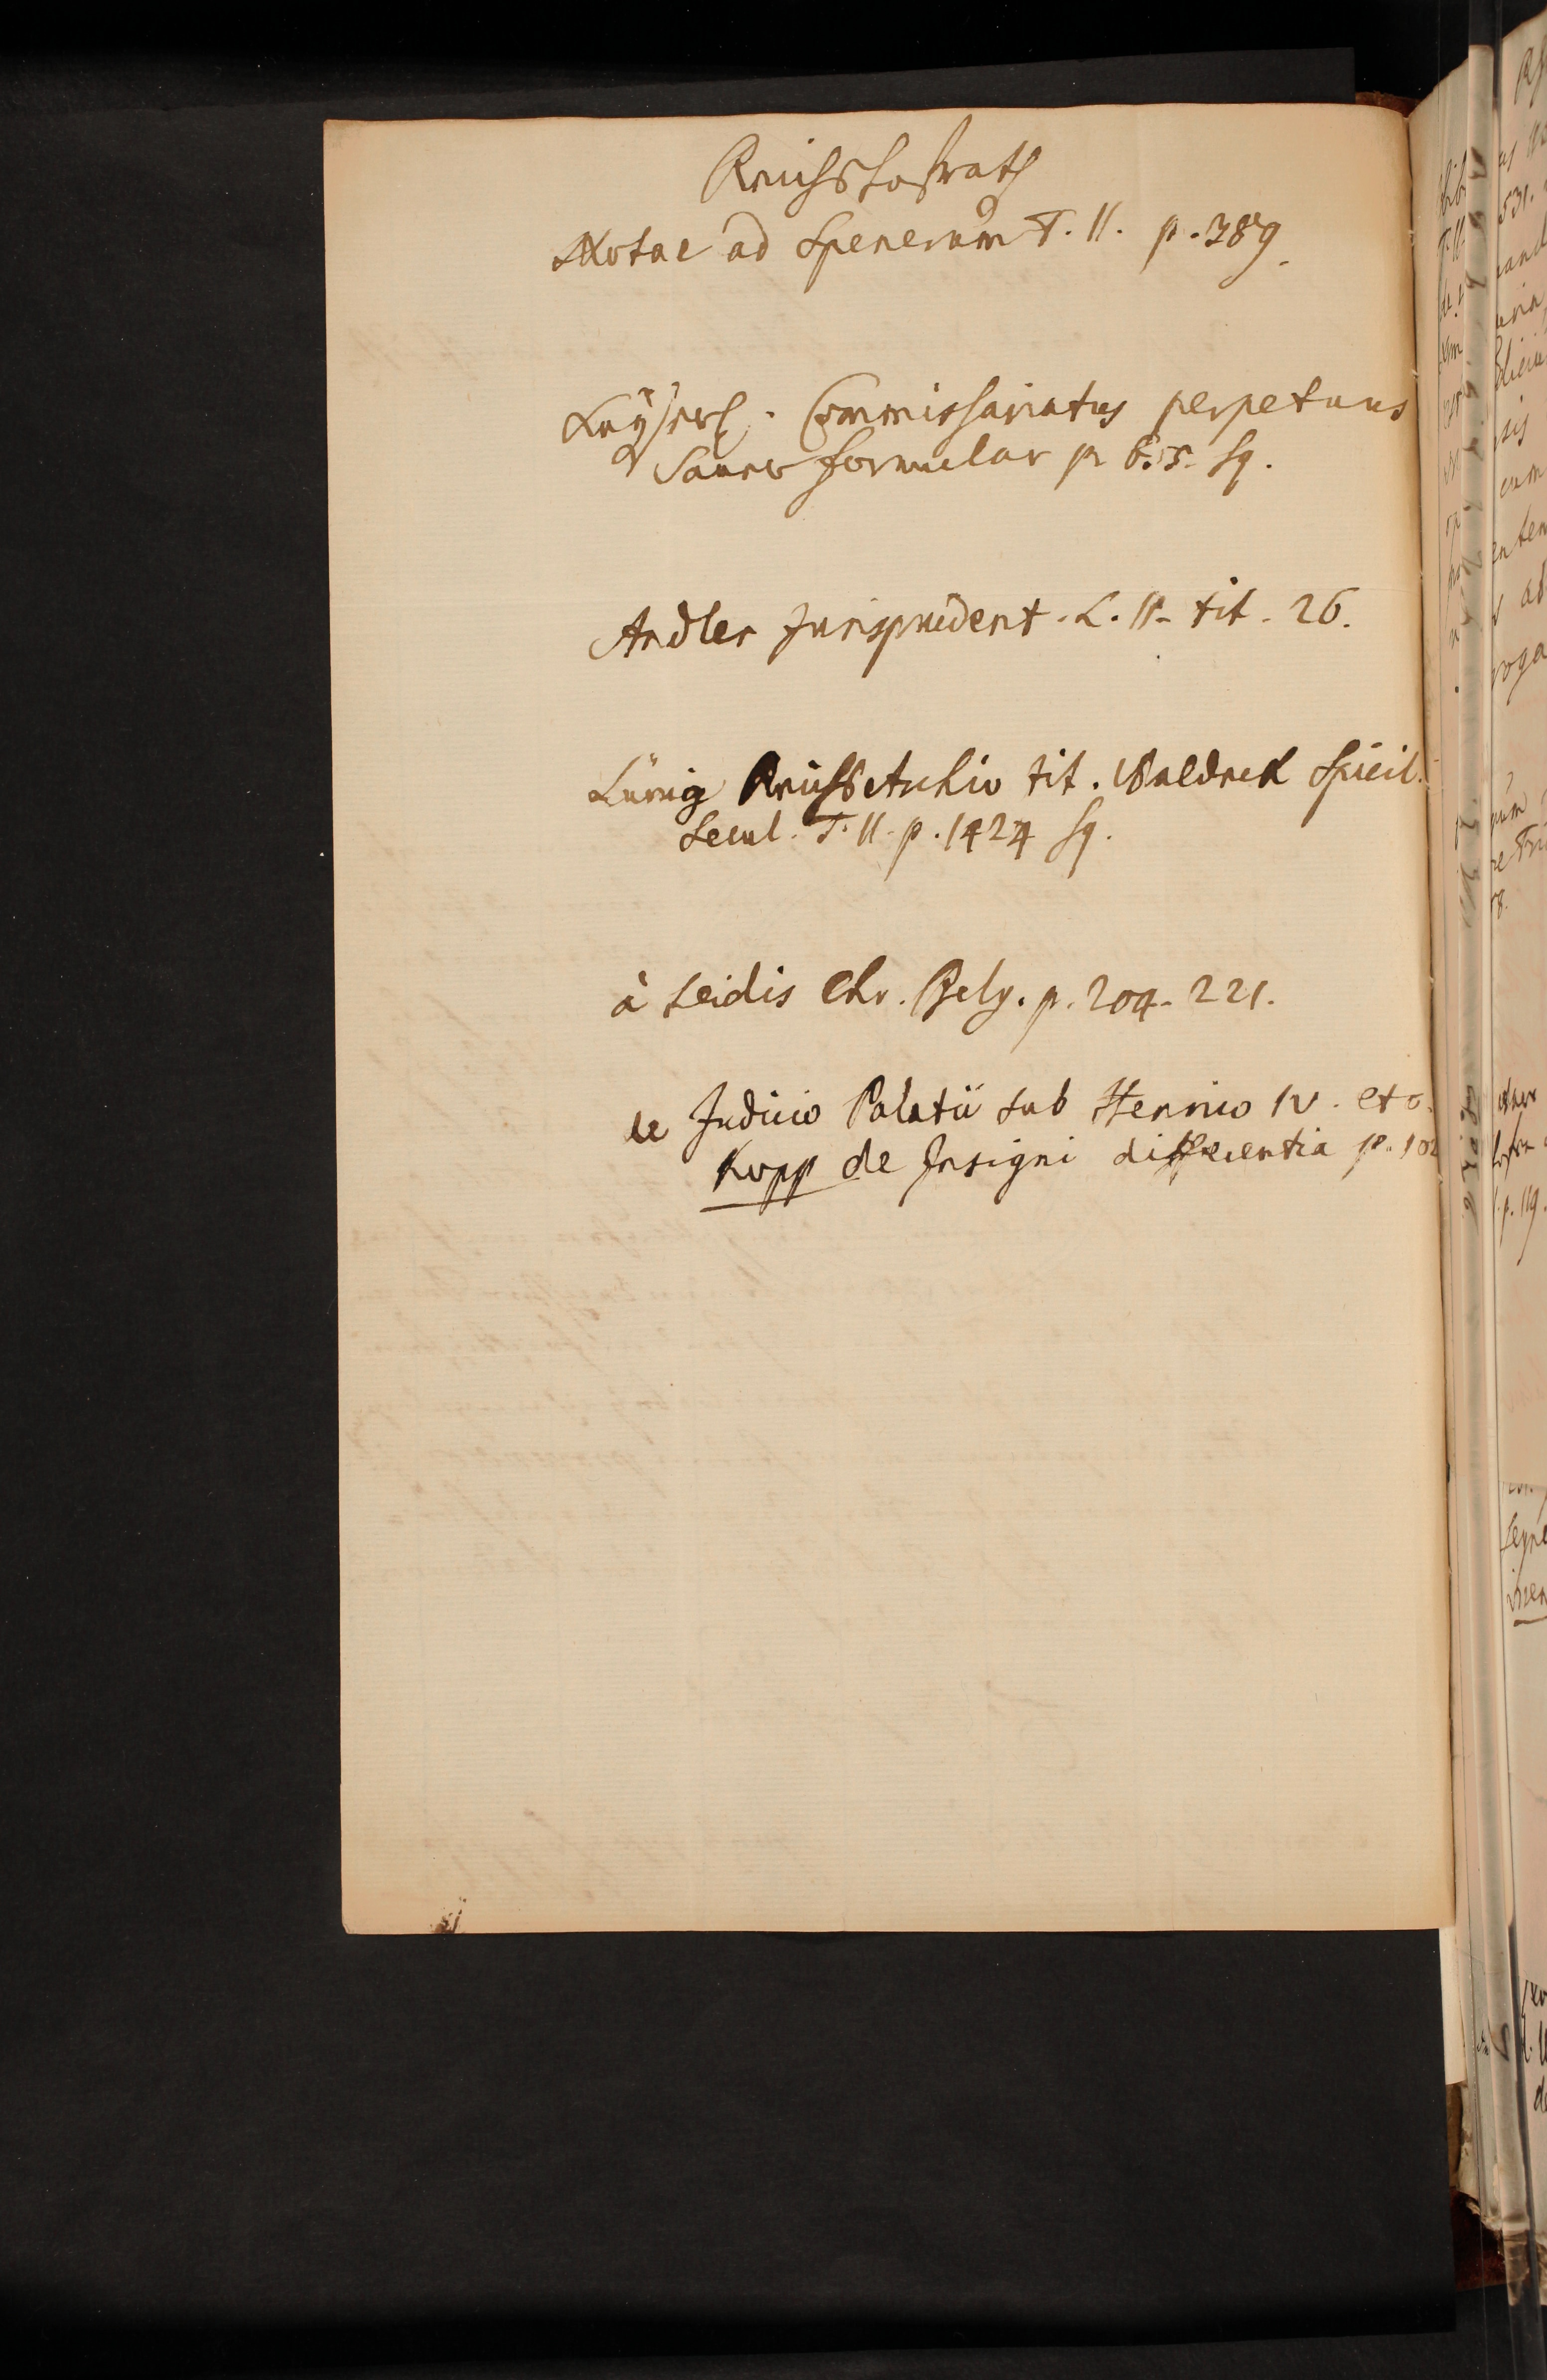 Reichshofrath
Notae ad Spenerum T. II. p. 389.
Kayserl. Commissariatus perpetuus
Saur formular p. 6.5. sq.
Andler Jurisprudent. L. II. tit. 26.
Lünig ReichsArchiv tit. Waldeck Spicil.
Secul. T. II. p. 1424 sq.
à Leidis Chr. Belg. p. 204-221.
de Judicio Palatii sub Henrico IV. et
Kopp de Insigni differentia p. 102